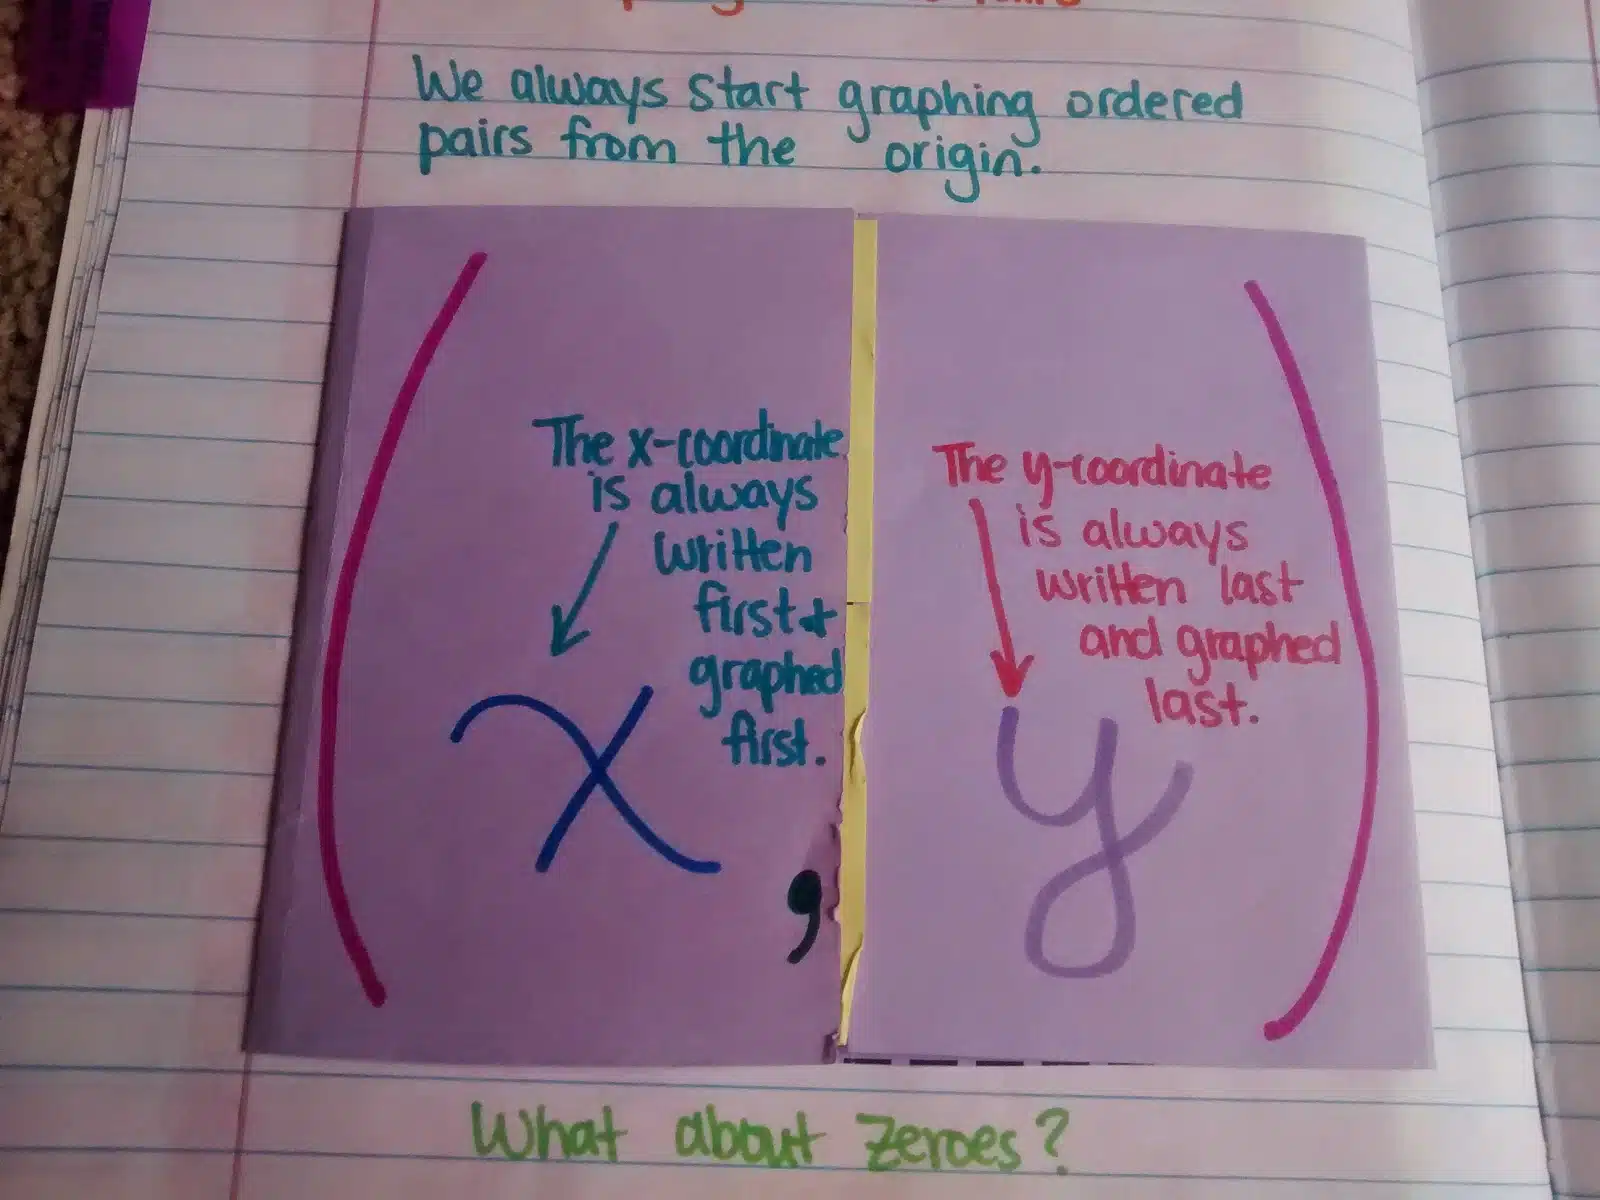 We always start graphing ordered
pairs from the origin.
(
The x-coordinate
is always
written
first +
graphed
first.
x
,
The y-coordinate
is always
written last
and graphed
last.
y
)
What about zeroes?